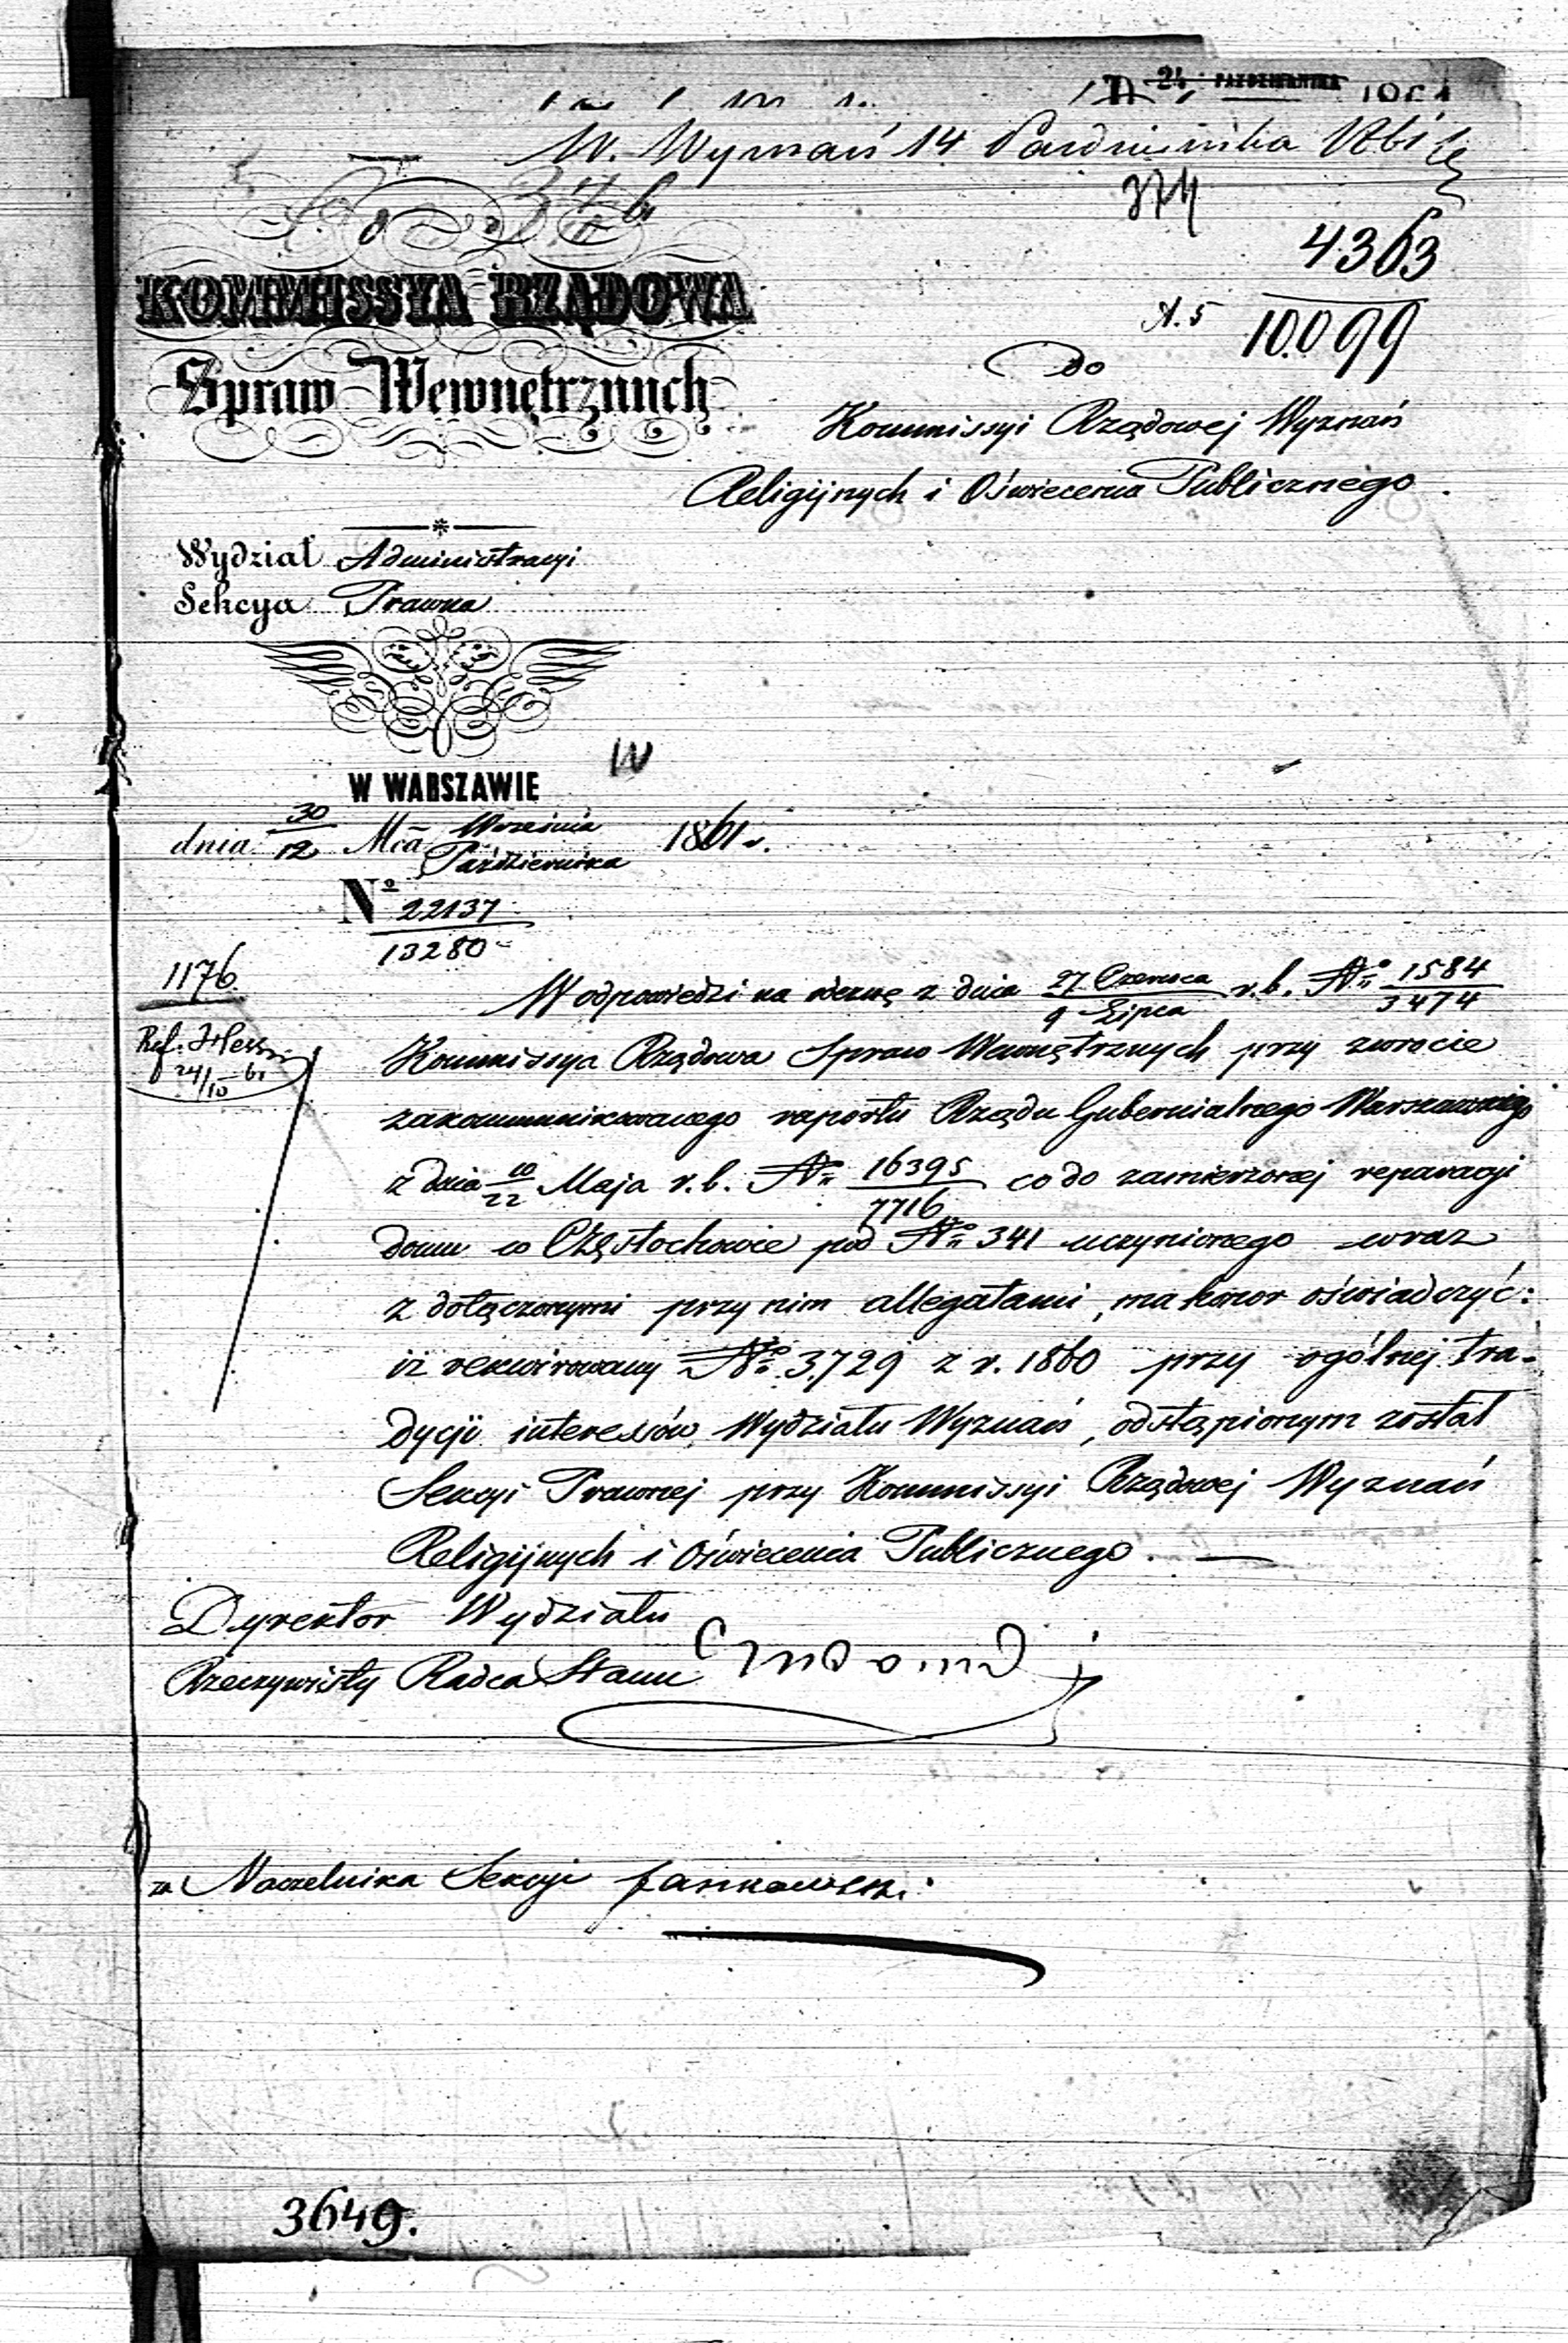 24 PAŹDZIERNIKA
W. Wyznań 14 Października 1861
374
4363
A. 5 10.099
KOMMISSYA RZĄDOWA
Spraw Wewnętrznych
Do
Kommissyi Rządowej Wyznań
Religijnych i Oświecenia Publicznego.
Wydział Administracyi
Sekcya Prawna
W
W WARSZAWIE
dnia 30/12 Mca Września/Października 1861 r.
No 22137/13280
1176.
Ref.
24/10 61
W odpowiedzi na odezwę z dnia 27 Czerwca/9 Lipca r.b. No 1584/3474
Kommissya Rządowa Spraw Wewnętrznych przy zwrocie
zakommunikowanego raportu Rządu Gubernialnego Warszawskiego
z dnia 10/22 Maja r.b. No 16395/7716 co do zamierzonej reparacyi
domu w Częstochowie pod No 341 uczynionego wraz
z dołączonymi przy nim allegatami, ma honor oświadczyć:
iż rekwirowany No 3,729 z r. 1860 przy ogólnej tra-
dycji interessów Wydziału Wyznań, odstąpionym został
Sekcyi Prawnej przy Kommissyi Rządowej Wyznań
Religijnych i Oświecenia Publicznego. —
Dyrektor Wydziału
Rzeczywisty Radca Stanu
za Naczelnika Sekcyi Jankowski
3649.